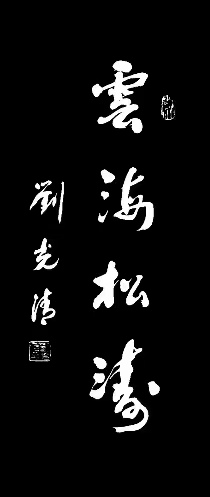 雲海松濤
劉光清